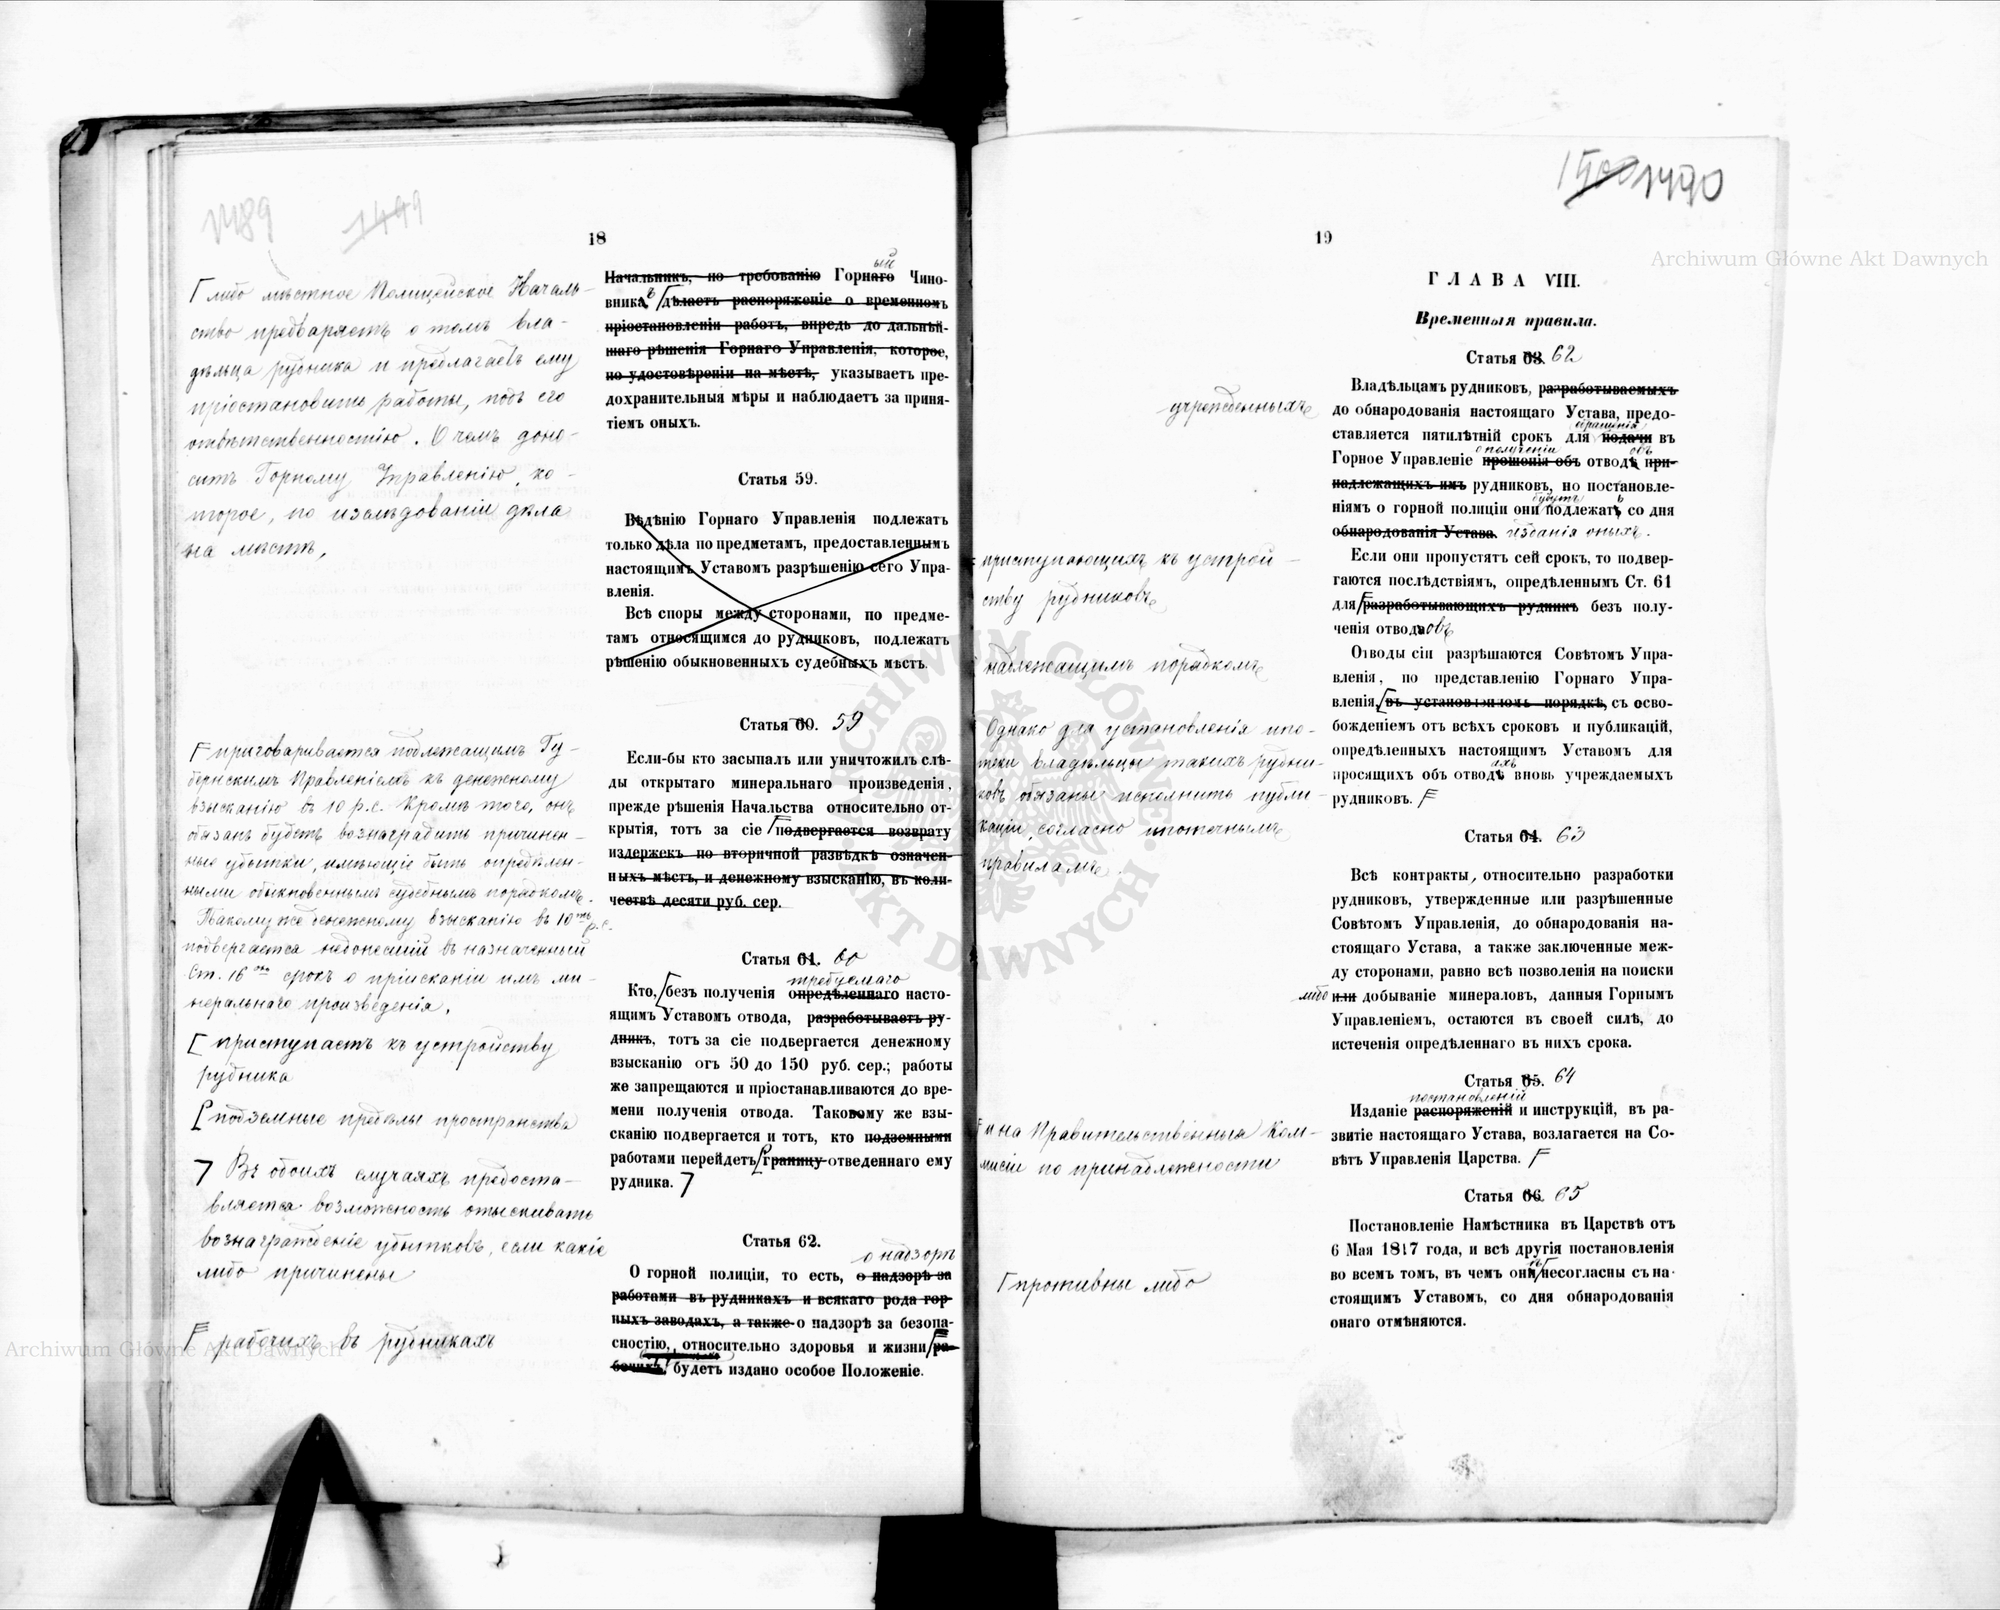 1489
1499
18
либо мѣстное Полицейское Началь-
ство предваряетъ о томъ вла-
дѣльца рудника и предлагаетъ ему
пріостановить работы, подъ его
отвѣтственностію. О чемъ доно-
ситъ Горному Управленію, ко-
торое, по изслѣдованіи дѣла
на мѣстѣ,
приговаривается подлежащимъ Гу-
бернскимъ Правленіемъ къ денежному
взысканію въ 10 р.с. Кромѣ того, онъ
обязанъ будетъ вознаградить причинен-
ные убытки, имѣющіе быть опредѣлен-
ными обыкновеннымъ судебнымъ порядкомъ.
Такому же денежному взысканію въ 10ть р.с.
подвергается недонесшій въ назначенный
Ст. 16ою срокъ о пріисканіи имъ ми-
неральнаго произведенія.
приступаетъ къ устройству
рудника
подземные предѣлы пространства
Въ обоихъ случаяхъ предоста-
вляется возможность отыскивать
вознагражденіе убытковъ, если какіе
либо причинены
рабочихъ въ рудникахъ
Начальникъ, по требованію Горнаго Чино-
ый
вника, дѣлаетъ распоряженіе о временномъ
ъ
пріостановленіи работъ, впредь до дальнѣй-
шаго рѣшенія Горнаго Управленія, которое,
по удостовѣреніи на мѣстѣ, указываетъ пре-
дохранительныя мѣры и наблюдаетъ за приня-
тіемъ оныхъ.
Статья 59.
Вѣдѣнію Горнаго Управленія подлежатъ
только дѣла по предметамъ, предоставленнымъ
настоящимъ Уставомъ разрѣшенію сего Упра-
вленія.
Всѣ споры между сторонами, по предме-
тамъ относящимся до рудниковъ, подлежатъ
рѣшенію обыкновенныхъ судебныхъ мѣстъ.
Статья 60. 59
Если-бы кто засыпалъ или уничтожилъ слѣ-
ды открытаго минеральнаго произведенія,
прежде рѣшенія Начальства относительно от-
крытія, тотъ за сіе подвергается возврату
издержекъ по вторичной развѣдкѣ означен-
ныхъ мѣстъ, и денежному взысканію, въ коли-
чествѣ десяти руб. сер.
Статья 61. 60
требуемаго
Кто, безъ полученія опредѣленнаго насто-
ящимъ Уставомъ отвода, разработываетъ ру-
дникъ, тотъ за сіе подвергается денежному
взысканію отъ 50 до 150 руб. сер.; работы
же запрещаются и пріостанавливаются до вре-
мени полученія отвода. Таковому же взы-
сканію подвергается и тотъ, кто подземными
работами перейдетъ границу отведеннаго ему
рудника.
Статья 62.
о надзорѣ
О горной полиціи, то есть, о надзорѣ за
работами въ рудникахъ и всякаго рода гор-
ныхъ заводахъ, а также о надзорѣ за безопа-
сностію, относительно здоровья и жизни ра-
бочихъ, будетъ издано особое Положеніе.
1500 1490
19
ГЛАВА VIII.
Временныя правила.
Статья 63. 62
Владѣльцамъ рудниковъ, разработываемыхъ
учрежденныхъ
до обнародованія настоящаго Устава, предо-
обращенія
ставляется пятилѣтній срокъ для подачи въ
о полученіи
объ
Горное Управленіе прошенія объ отводѣ при-
надлежащихъ имъ рудниковъ, но постановле-
будутъ
ніямъ о горной полиціи они подлежатъ со дня
обнародованія Устава. изданія оныхъ.
Если они пропустятъ сей срокъ, то подвер-
гаются послѣдствіямъ, опредѣленнымъ Ст. 61
для разработывающихъ рудникъ безъ полу-
ченія отвода овъ
приступающихъ къ устрой-
ству рудниковъ
Отводы сіи разрѣшаются Совѣтомъ Упра-
вленія, по представленію Горнаго Упра-
вленія, въ установленномъ порядкѣ, съ осво-
надлежащимъ порядкомъ
божденіемъ отъ всѣхъ сроковъ и публикацій,
опредѣленныхъ настоящимъ Уставомъ для
ахъ
просящихъ объ отводѣ вновь учреждаемыхъ
рудниковъ.
Однако для установленія ипо-
теки владѣльцы такихъ рудни-
ковъ обязаны исполнить публи-
каціи, согласно ипотечнымъ
правиламъ.
Статья 64. 63
Всѣ контракты, относительно разработки
рудниковъ, утвержденные или разрѣшенные
Совѣтомъ Управленія, до обнародованія на-
стоящаго Устава, а также заключенные меж-
ду сторонами, равно всѣ позволенія на поиски
либо или добываніе минераловъ, данныя Горнымъ
Управленіемъ, остаются въ своей силѣ, до
истеченія опредѣленнаго въ нихъ срока.
Статья 65. 64
постановленій
Изданіе распоряженій и инструкцій, въ ра-
звитіе настоящаго Устава, возлагается на Со-
вѣтъ Управленія Царства.
и на Правительственныя Ком-
мисіи по принадлежности
Статья 66. 65
Постановленіе Намѣстника въ Царствѣ отъ
6 Мая 1817 года, и всѣ другія постановленія
во всемъ томъ, въ чемъ они несогласны съ на-
стоящимъ Уставомъ, со дня обнародованія
онаго отмѣняются.
противны либо
Archiwum Główne Akt Dawnych
Archiwum Główne Akt Dawnych
ARCHIWUM GŁÓWNE AKT DAWNYCH